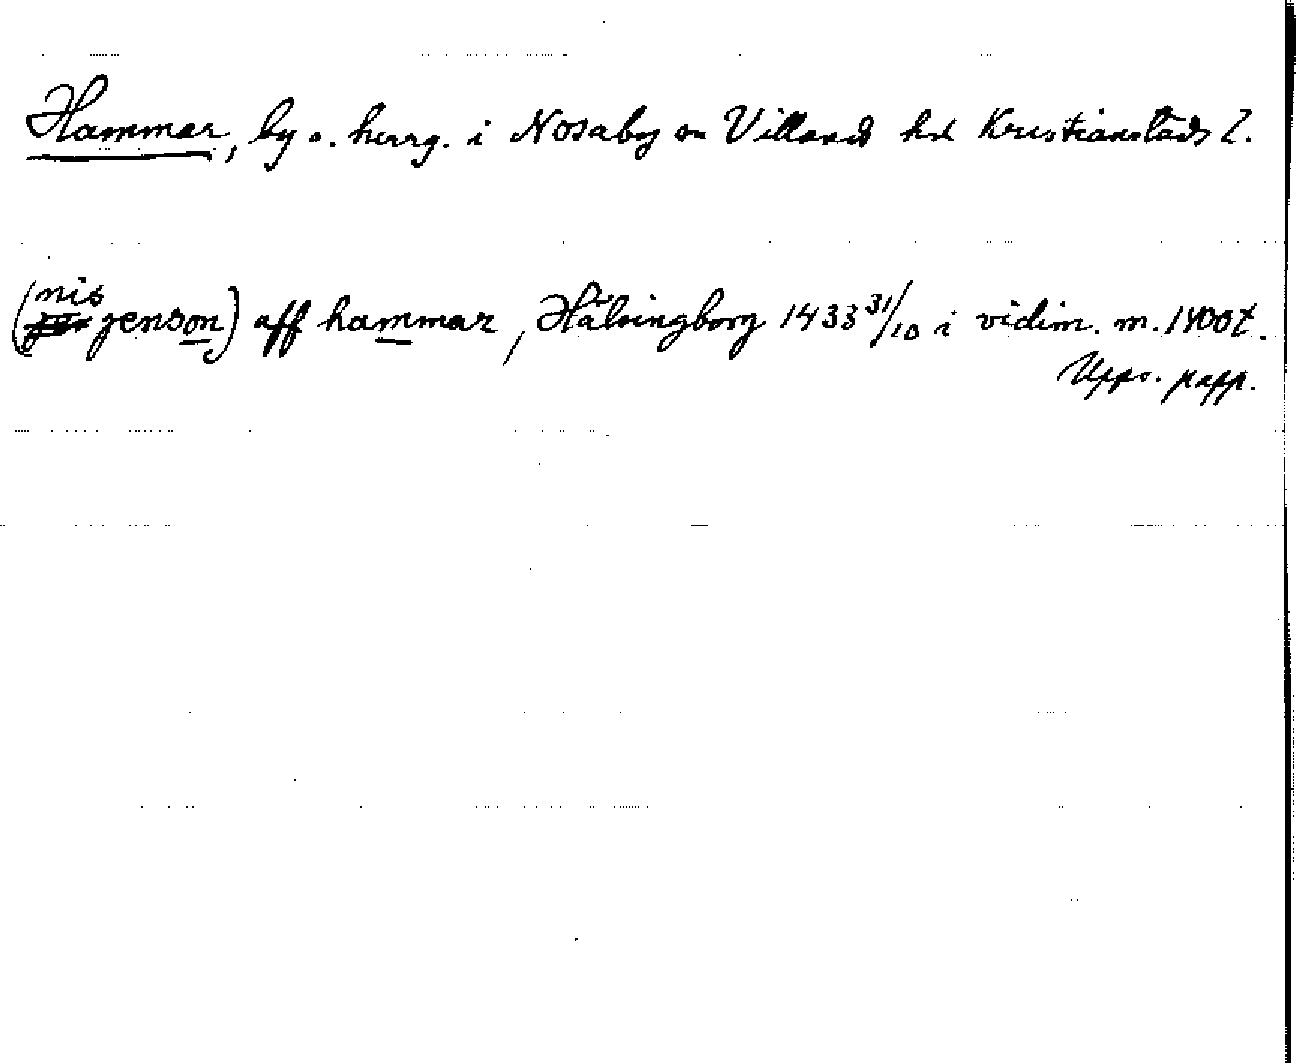 Hammar, by o. herrg. i Nosaby sn Villands hd Kristianstads l.
(nis jenson) aff hammar, Hälsingborg 1433 31/10 i vidim. m. 1400t.
Upps. papp.